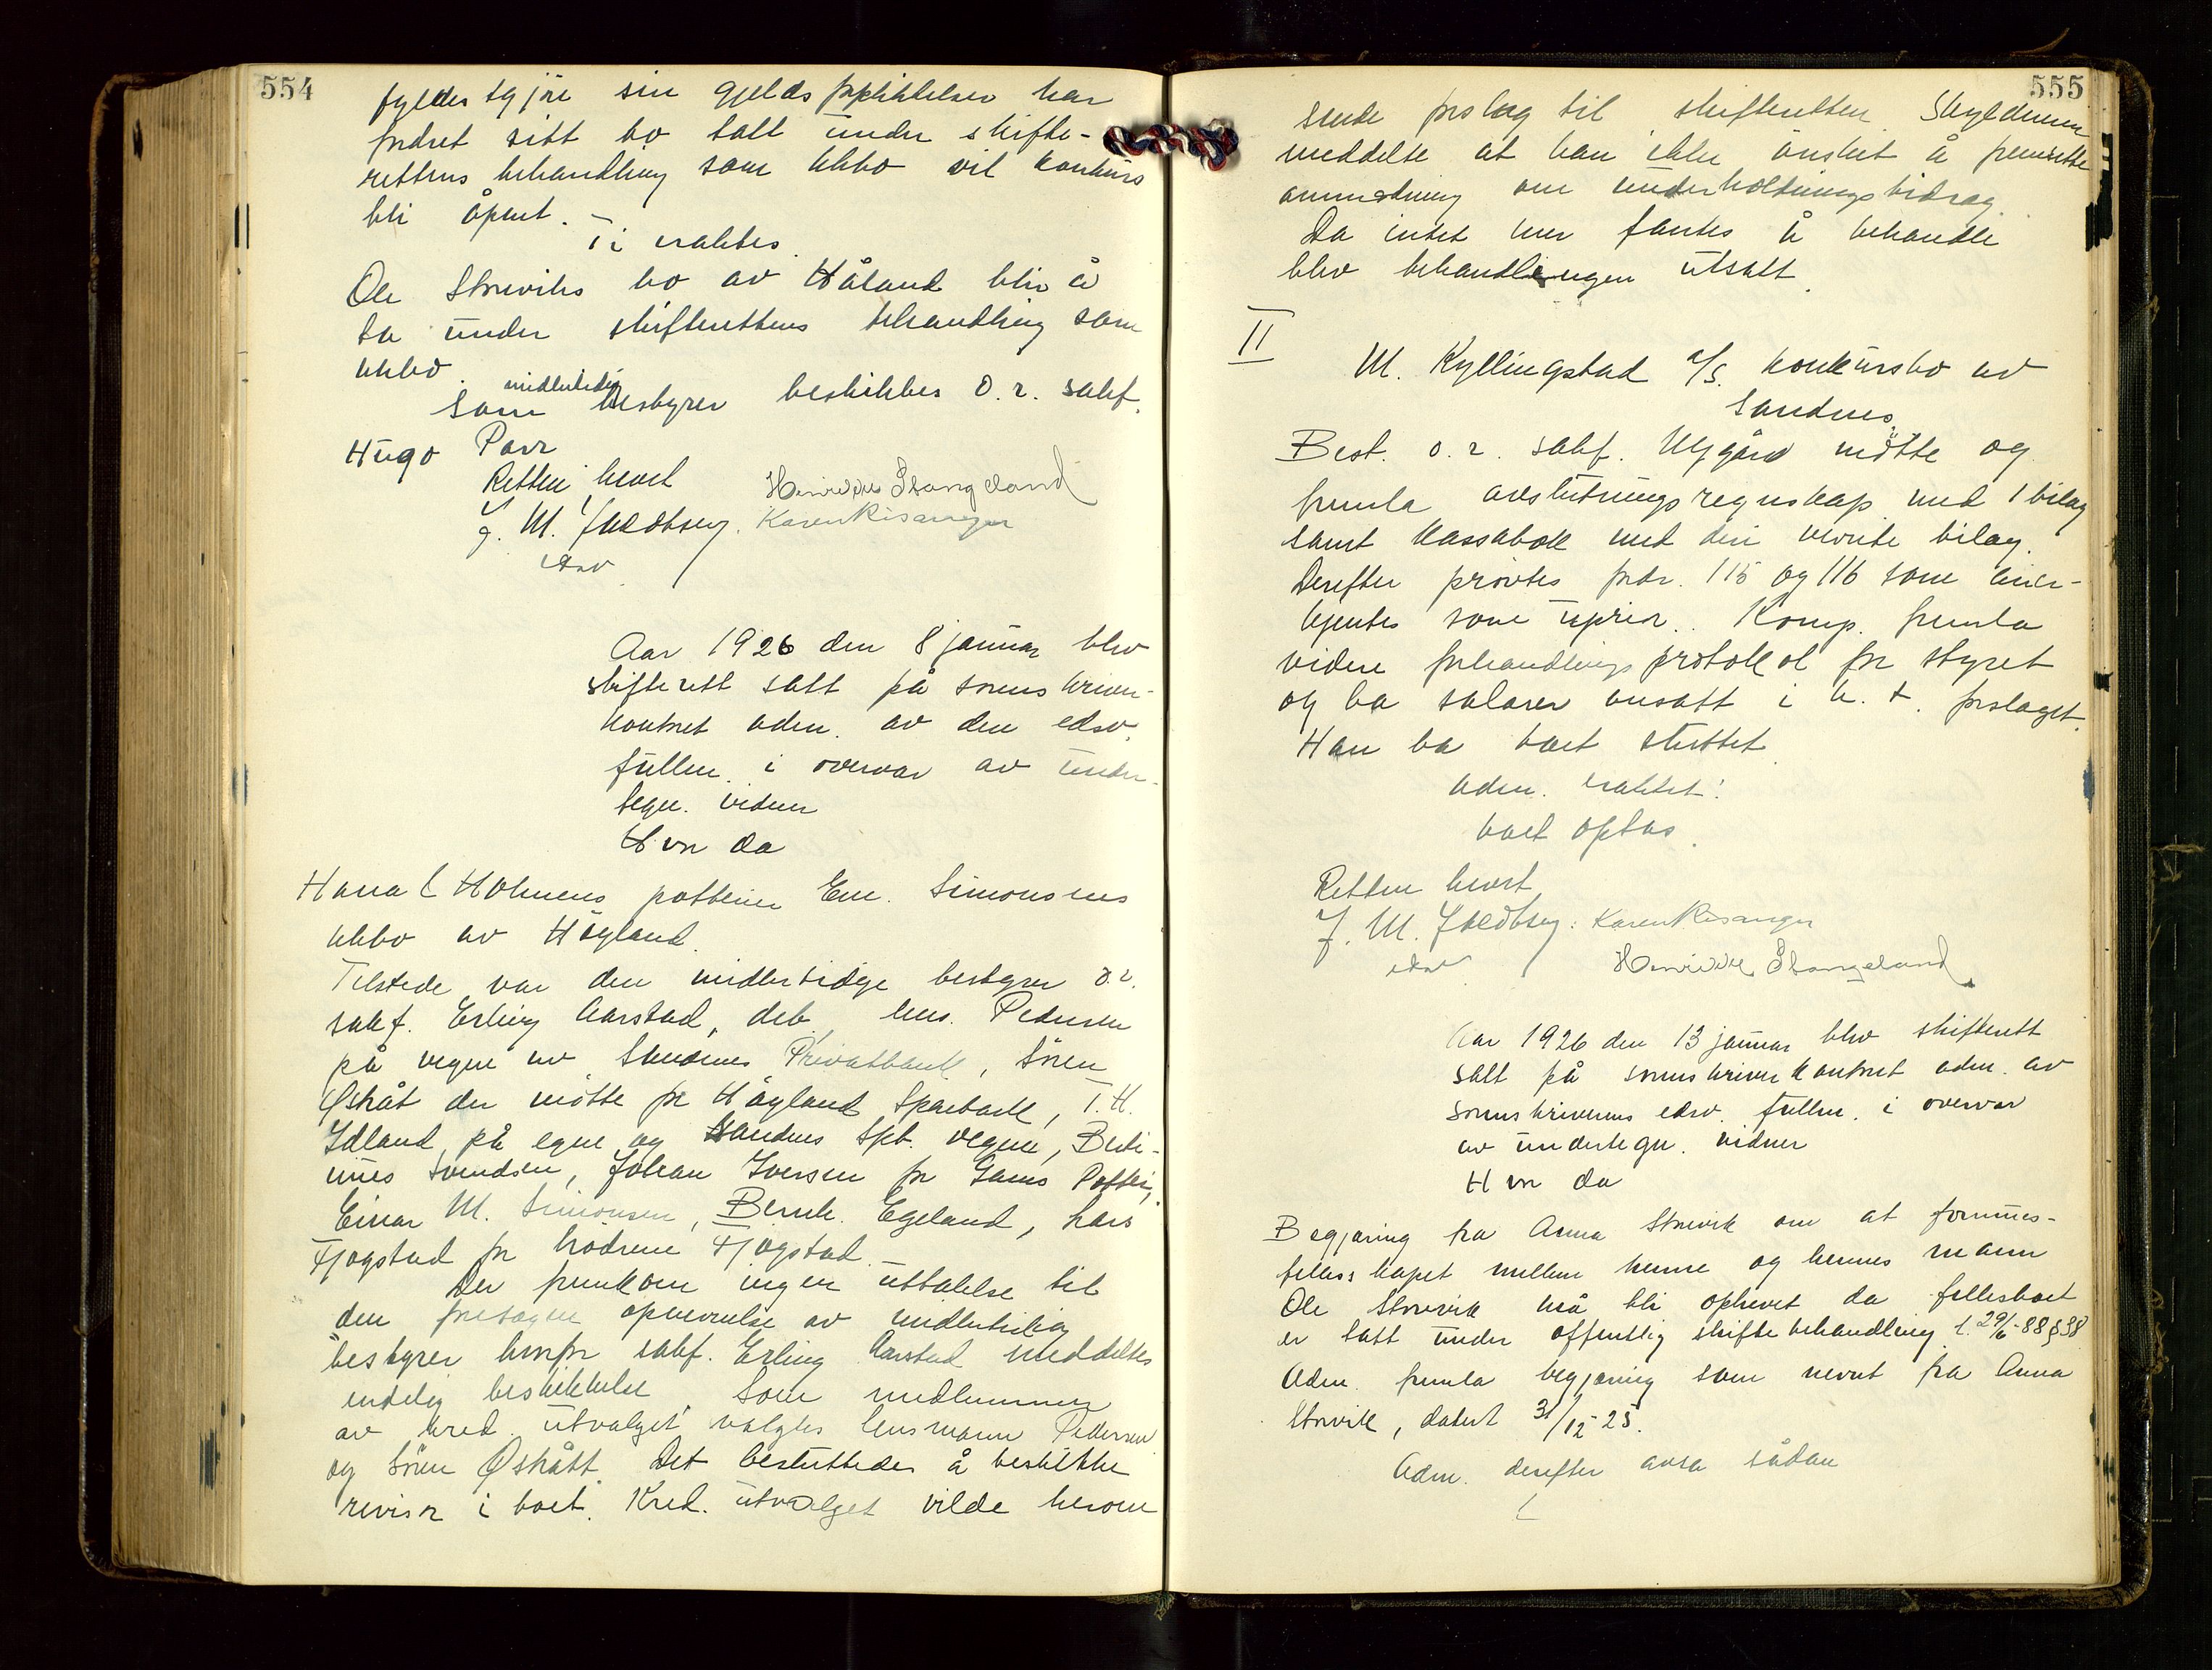 554
fyldestgjöre sin gjeldsforpliktelser har
fordret sitt bo tatt under skifte-
rettens behandling som kkbo vil konkurs
bli åpnet.
Ti eraktes
Ole Storeviks bo av Håland blir å
ta under skifterettens behandling som
kkbo.
Som midlertidig bestyrer beskikkes o.r. sakf.
Hugo Parr
Retten hevet
J. M. Jacobsen. Henrikke Stangeland
edsv Karen Risanger
Aar 1926 den 8 januar blev
skifterett satt på sorenskriver-
kontoret adm. av den edsv.
fullm. i overvær av under-
tegn. vidner
Hvor da
Hana & Holmens potterier Em. Simonsens
kkbo av Höyland
Tilstede var den midlertidge bestyrer o.r.
sakf. Erling Aarstad, deb., lens. Pedersen
på vegne av Sandnes Privatbank, Sören
Østråt der mötte for Höyland Sparebank, T. H.
Idland på egne og Sandnes Spb. vegne, Berti-
nius Svendsen, Johan Iversen for Gans Potteri,
Einar M. Simonsen, Bernh. Egeland, Lars
Fjogstad for brödrene Fjogstad.
Der fremkom ingen uttalelse til
den foretagne opnevnelse av midlertidig
bestyrer hvorfor sakf. Erling Aarstad meddeltes
endelig beskikkelse. Som medlemmer
av kred. utvalget valgtes lensmann Pedersen
og Sören Østrått. Det besluttedes å beskikke
revisor i boet. Kred. utvalget vilde herom
555
sende forslag til skifteretten. Skyldneren
meddelte at han ikke önsket å fremsette
anmodning om underholdningsbidrag.
Da intet mer fantes å behandle
blev behandlingen utsatt.
II
M. Kyllingstad A/S. konkursbo av
Sandnes.
Best. o.r. sakf. Nygård mötte og
fremla avslutningsregnskap med 1 bilag
samt kassabok med deri nevnte bilag.
Derefter prövtes fordr. 115 og 116 som aner-
kjentes som uprior. Komp. fremla
videre forhandlingsprotokol for styret
og ba salærer ansatt i h. t. forslaget.
Han ba boet sluttet
Adm. eraktet:
boet optas.
Retten hevet
J. M. Jacobsen. Karen Risanger
edsv Henrikke Stangeland
Aar 1926 den 13 januar blev skifterett
satt på sorenskriverkontoret adm. av
sorenskriverens edsv. fullm. i overvær
av undertegn. vidner
Hvor da
Begjæring fra Anna Storevik om at formues-
fellesskapet mellem henne og hennes mann
Ole Storevik må bli ophevet da fellesboet
er tatt under offentlig skiftebehandling l. 29/6-88 § 38
Adm. fremla begjæring som nevnt fra Anna
Storvik, datert 31/12-25.
Adm. derefter avsa sådan